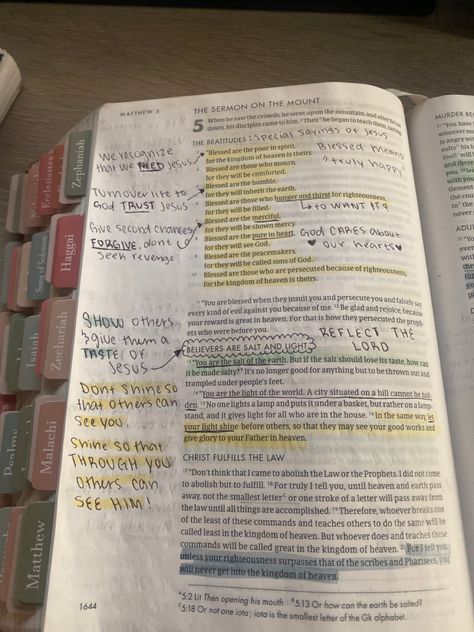 MATTHEW 5
THE SERMON ON THE MOUNT
5 When he saw the crowds, he went up on the mountain, and after he sat
down, his disciples came to him. ² Then he began to teach them, saying:
THE BEATITUDES: Special sayings of Jesus
"Blessed are the poor in spirit,
for the kingdom of heaven is theirs.
Blessed are those who mourn,
for they will be comforted.
Blessed are the humble,
for they will inherit the earth.
Blessed are those who hunger and thirst for righteousness,
for they will be filled.
Blessed are the merciful,
for they will be shown mercy.
Blessed are the pure in heart,
for they will see God.
Blessed are the peacemakers,
for they will be called sons of God.
Blessed are those who are persecuted because of righteousness,
for the kingdom of heaven is theirs.
Blessed means
"truly happy"
↳ to WANT IT
GOD CARES about
♥ our hearts ♥
we recognize
that we NEED Jesus
Turn over life to
God TRUST Jesus
Give second chances
FORGIVE, dont
seek revenge
¹¹ "You are blessed when they insult you and persecute you and falsely say
every kind of evil against you because of me. ¹² Be glad and rejoice, because
your reward is great in heaven. For that is how they persecuted the proph-
ets who were before you.
REFLECT THE
LORD
SHOW others
& give them a
TASTE of
Jesus
BELIEVERS ARE SALT AND LIGHT
¹³ "You are the salt of the earth. But if the salt should lose its taste, how can
it be made salty? It's no longer good for anything but to be thrown out and
trampled under people's feet.
¹⁴ "You are the light of the world. A city situated on a hill cannot be hid-
den. ¹⁵ No one lights a lamp and puts it under a basket, but rather on a lamp-
stand, and it gives light for all who are in the house. ¹⁶ In the same way, let
your light shine before others, so that they may see your good works and
give glory to your Father in heaven.
Dont Shine so
that others can
see you.
Shine so that
THROUGH YOU
others can
SEE HIM!
CHRIST FULFILLS THE LAW
¹⁷ "Don't think that I came to abolish the Law or the Prophets. I did not come
to abolish but to fulfill. ¹⁸ For truly I tell you, until heaven and earth pass
away, not the smallest letter ᶜ or one stroke of a letter will pass away from
the law until all things are accomplished. ¹⁹ Therefore, whoever breaks one
of the least of these commands and teaches others to do the same will be
called least in the kingdom of heaven. But whoever does and teaches these
commands will be called great in the kingdom of heaven. ²⁰ For I tell you,
unless your righteousness surpasses that of the scribes and Pharisees, you
will never get into the kingdom of heaven.
ᵃ5:2 Lit Then opening his mouth ᵇ5:13 Or how can the earth be salted?
ᶜ5:18 Or not one iota; iota is the smallest letter of the Gk alphabet.
1644
Ecclesiastes
Zephaniah
Song of Solomon
Haggai
Isaiah
Zechariah
Psalms
Malachi
Matthew
MURDER BE